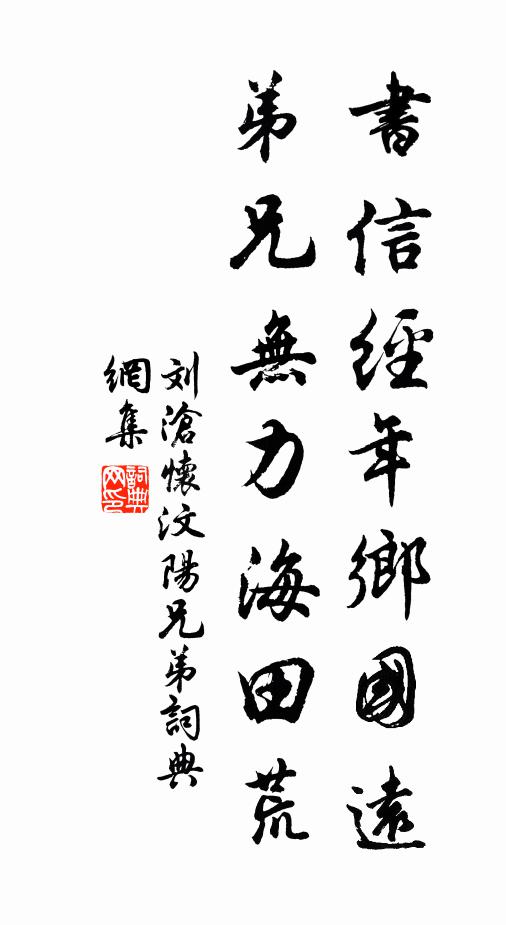 書信經年鄉國遠
弟兄無力海田荒
刘滄懷汶陽兄弟詞典
網集
詞典
网印